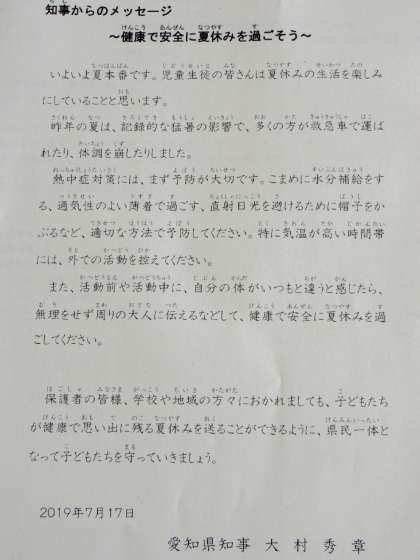 知事からのメッセージ
～健康で安全に夏休みを過ごそう～
いよいよ夏本番です。児童生徒の皆さんは夏休みの生活を楽しみ
にしていることと思います。
昨年の夏は、記録的な猛暑の影響で、多くの方が救急車で運ば
れたり、体調を崩したりしました。
熱中症対策には、まず予防が大切です。こまめに水分補給をす
る、通気性のよい薄着で過ごす、直射日光を避けるために帽子をか
ぶるなど、適切な方法で予防してください。特に気温が高い時間帯
には、外での活動を控えてください。
また、活動前や活動中に、自分の体がいつもと違うと感じたら、
無理をせず周りの大人に伝えるなどして、健康で安全に夏休みを過
ごしてください。
保護者の皆様、学校や地域の方々におかれましても、子どもたち
が健康で思い出に残る夏休みを送ることができるように、県民一体と
なって子どもたちを守っていきましょう。
2019年7月17日
愛知県知事 大村秀章